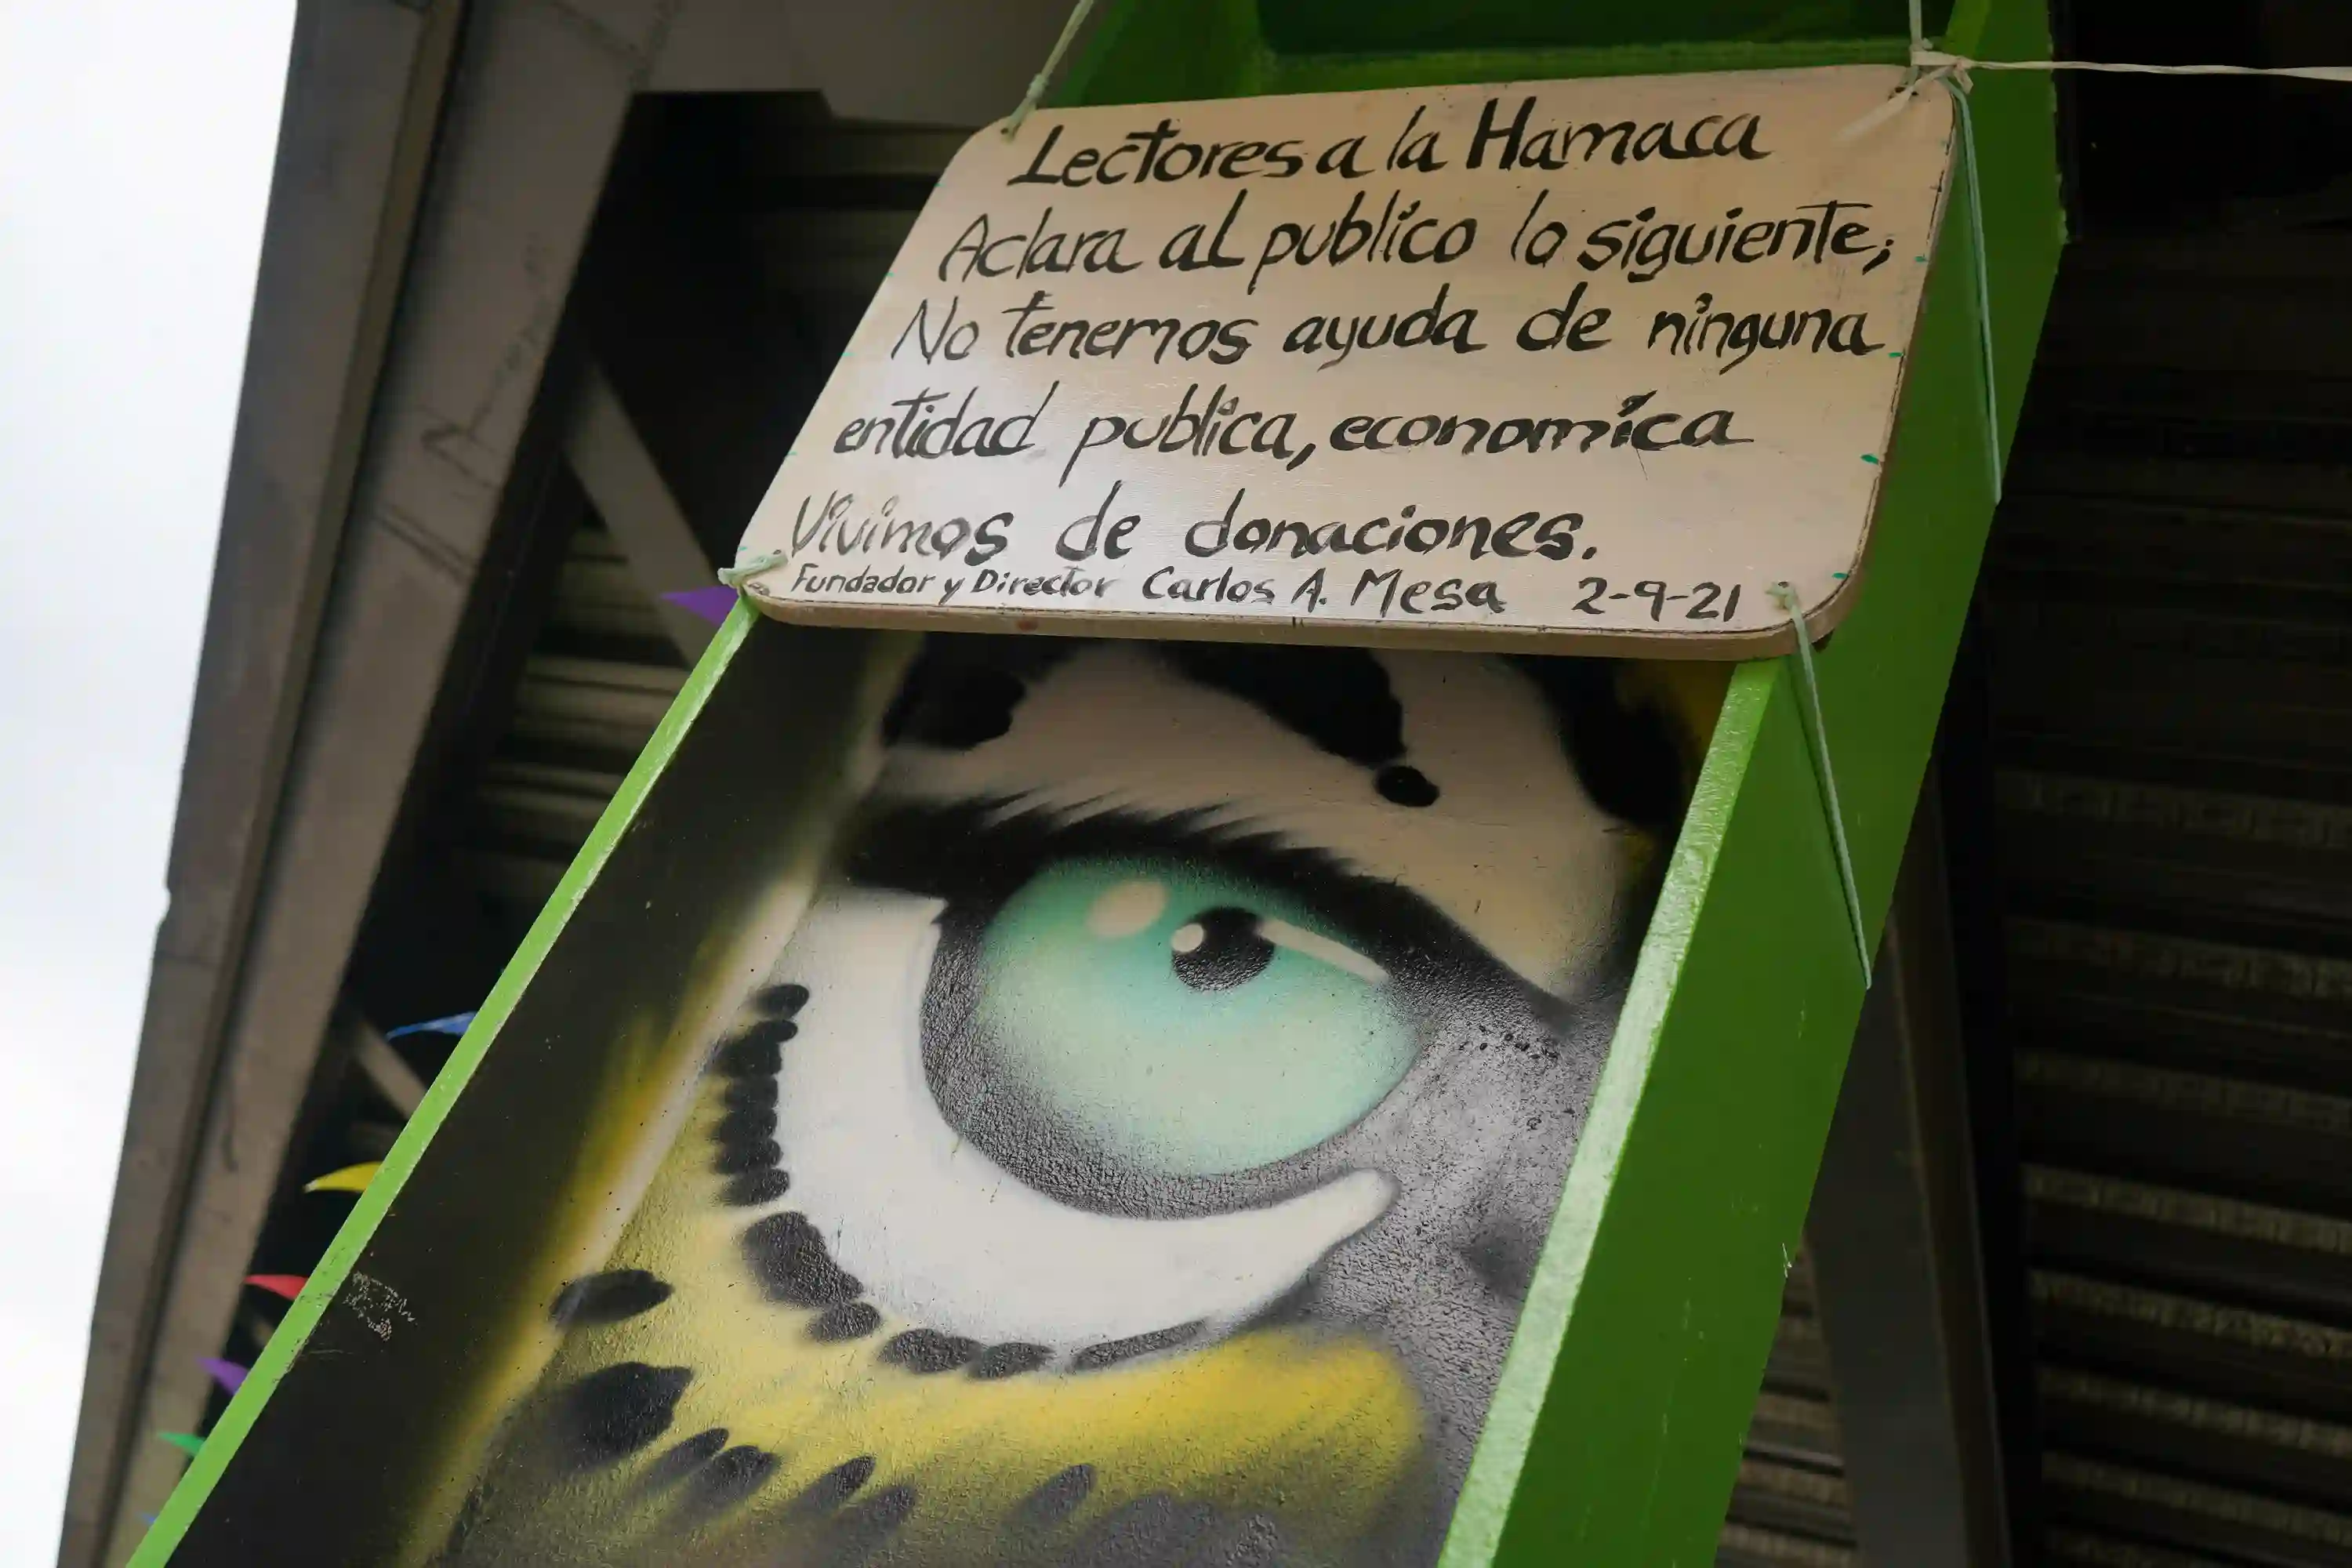 Lectores a la Hamaca
Aclara al publico lo siguiente;
No tenemos ayuda de ninguna
entidad publica, economica
Vivimos de donaciones.
Fundador y Director Carlos A. Mesa 2-9-21